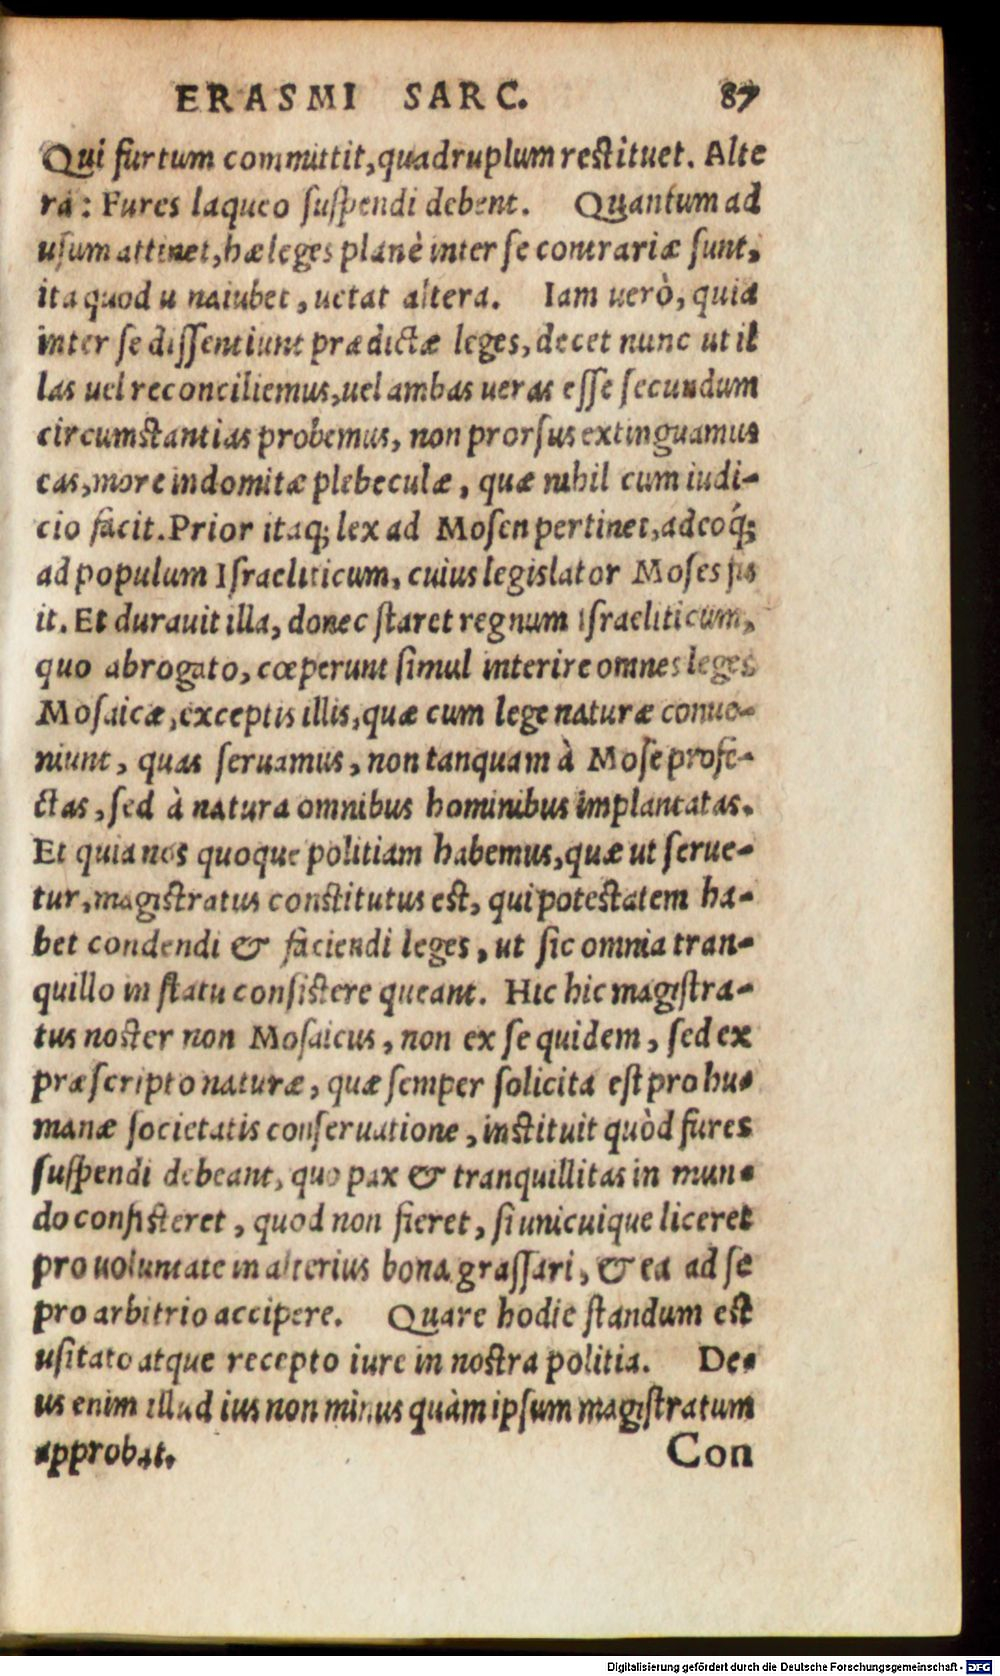 ERASMI SARC. 87
Qui furtum committit, quadruplum restituet. Alte
ra: Fures laqueo suspendi debent. Quantum ad
usum attinet, hæ leges planè inter se contrariæ sunt,
ita quod una iubet, uetat altera. Iam uerò, quia
inter se dissentiunt prædictæ leges, decet nunc ut il
las uel reconciliemus, uel ambas ueras esse secundum
circumstantias probemus, non prorsus extinguamus
eas, more indomitæ plebeculæ, quæ nihil cum iudi-
cio facit. Prior itaq; lex ad Mosen pertinet, adeoq́;
ad populum Israeliticum, cuius legislator Moses fu
it. Et durauit illa, donec staret regnum Israeliticum,
quo abrogato, cœperunt simul interire omnes leges
Mosaicæ, exceptis illis, quæ cum lege naturæ conue-
niunt, quas seruamus, non tanquam à Mose profe-
ctas, sed à natura omnibus hominibus implantatas.
Et quia nos quoque politiam habemus, quæ ut serue-
tur, magistratus constitutus est, qui potestatem ha-
bet condendi & faciendi leges, ut sic omnia tran-
quillo in statu consistere queant. Hic hic magistra-
tus noster non Mosaicus, non ex se quidem, sed ex
præscripto naturæ, quæ semper solicita est pro hu-
manæ societatis conseruatione, instituit quòd fures
suspendi debeant, quo pax & tranquillitas in mun-
do consisteret, quod non fieret, si unicuique liceret
pro uoluntate in alterius bona grassari, & ea ad se
pro arbitrio accipere. Quare hodie standum est
usitato atque recepto iure in nostra politia. De-
us enim illud ius non minus quàm ipsum magistratum
approbat. Con
Digitalisierung gefördert durch die Deutsche Forschungsgemeinschaft - DFG